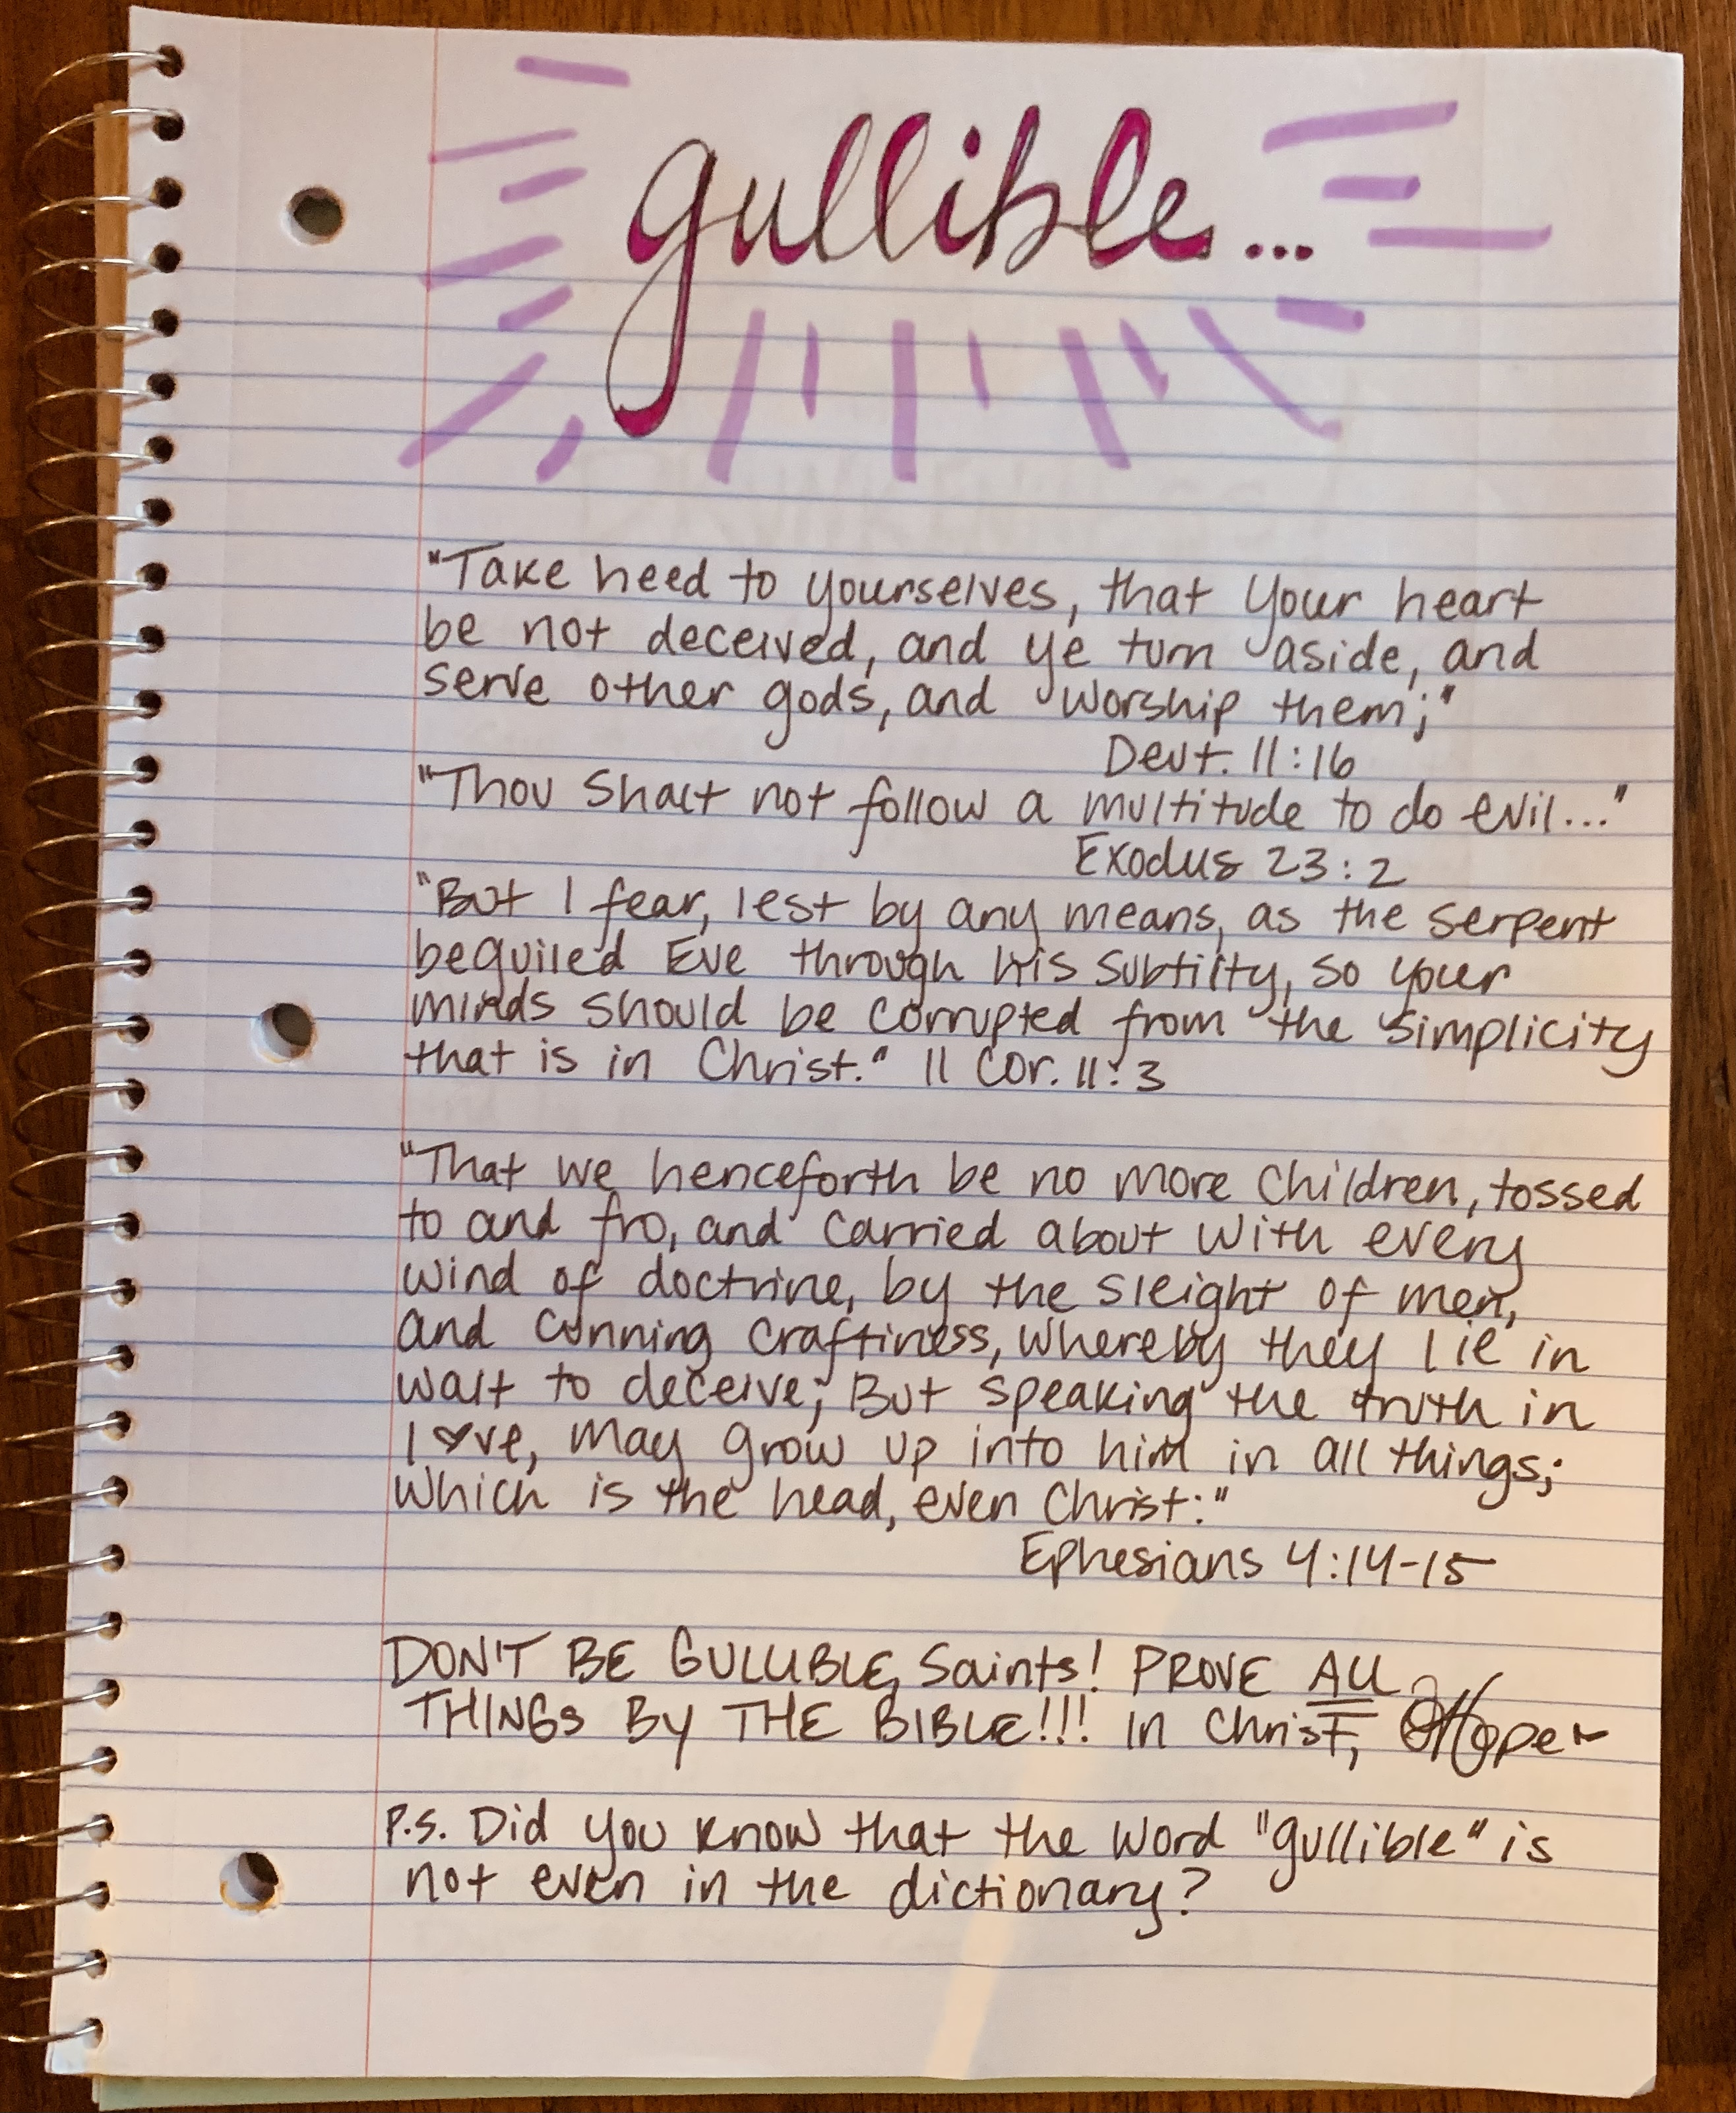 gullible...
"Take heed to yourselves, that your heart
be not deceived, and ye turn aside, and
serve other gods, and worship them;"
Deut. 11:16
"Thou shalt not follow a multitude to do evil..."
Exodus 23:2
"But I fear, lest by any means, as the serpent
beguiled Eve through his subtilty, so your
minds should be corrupted from the simplicity
that is in Christ." II Cor. 11:3
"That we henceforth be no more children, tossed
to and fro, and carried about with every
wind of doctrine, by the sleight of men,
and cunning craftiness, whereby they lie in
wait to deceive; But speaking the truth in
love, may grow up into him in all things;
which is the head, even Christ:"
Ephesians 4:14-15
DON'T BE GULLIBLE, Saints! PROVE ALL
THINGS BY THE BIBLE!!! In Christ,
P.S. Did you know that the word "gullible" is
not even in the dictionary?